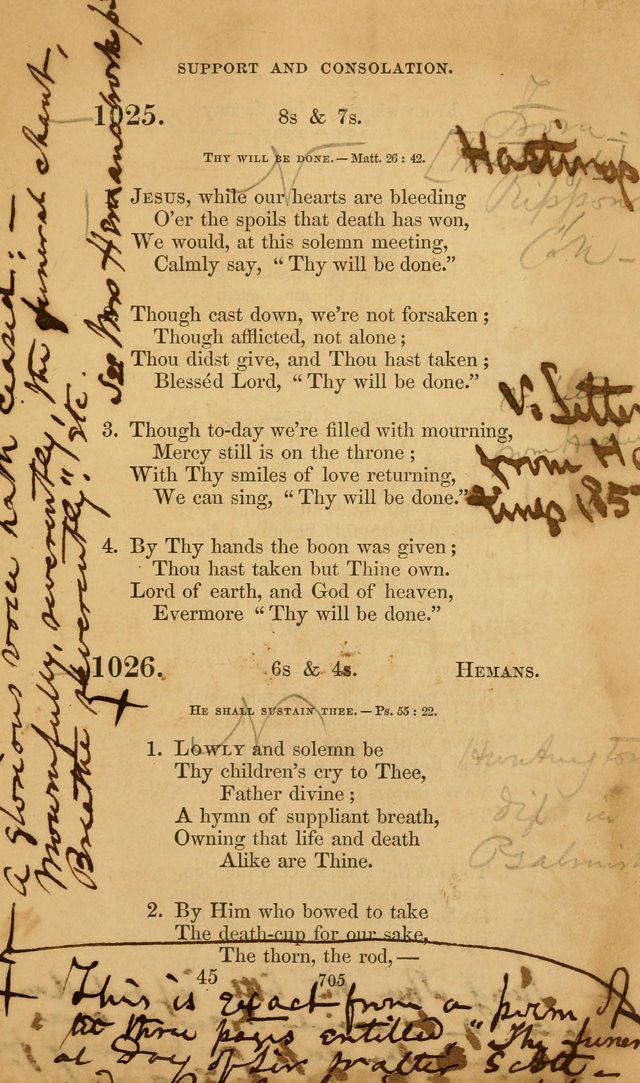 SUPPORT AND CONSOLATION.
1025. 8s & 7s.
THY WILL BE DONE.—Matt. 26 : 42.
Hastings
JESUS, while our hearts are bleeding
O'er the spoils that death has won,
We would, at this solemn meeting,
Calmly say, “Thy will be done.”
Though cast down, we're not forsaken ;
Though afflicted, not alone ;
Thou didst give, and Thou hast taken ;
Blesséd Lord, “Thy will be done.”
3. Though to-day we're filled with mourning,
Mercy still is on the throne ;
With Thy smiles of love returning,
We can sing, “Thy will be done.”
V. Letter
from Ha
tings 185
4. By Thy hands the boon was given ;
Thou hast taken but Thine own.
Lord of earth, and God of heaven,
Evermore “Thy will be done.”
1026. 6s & 4s. HEMANS.
HE SHALL SUSTAIN THEE.—Ps. 55 : 22.
1. LOWLY and solemn be
Thy children's cry to Thee,
Father divine ;
A hymn of suppliant breath,
Owning that life and death
Alike are Thine.
2. By Him who bowed to take
The death-cup for our sake,
The thorn, the rod,—
45 705
Huntington
dif in
Psalmist
A glorious voice hath ceased :—
Mournfully, reverently, the funeral chant,
Breathe reverently." etc.
See Mrs Hemans works
This is exact from a poem
three pages entitled, "The funer
al Day of Sir Walter Scott.